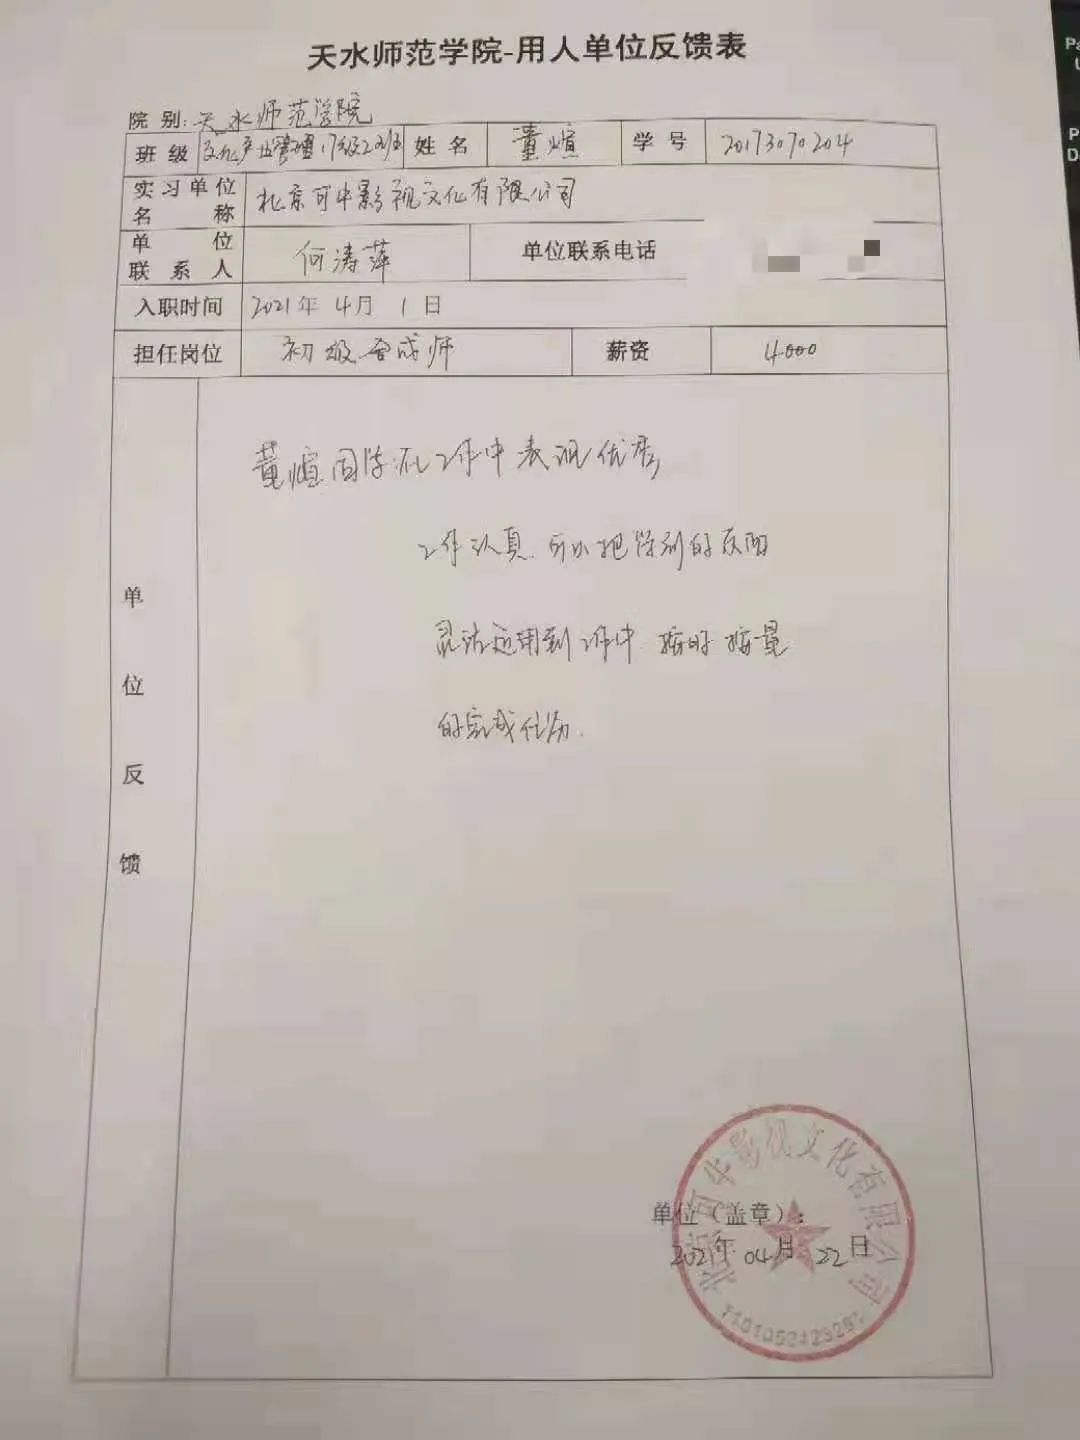 天水师范学院-用人单位反馈表
院 别: 天水师范学院
班 级 文化产业管理17级2班 姓 名 董煊 学 号 20173070204
实习单位名 称 北京可华影视文化有限公司
单 位联 系 人 何涛萍 单位联系电话
入职时间 2021年 4月 1日
担任岗位 初级合成师 薪资 4000
单位反馈
董煊同学在工作中表现优秀,
工作认真.可以把学到的东西
灵活运用到工作中 按时按量
的完成任务.
单位（盖章）:
2021年 04月 22日
北京可华影视文化有限公司